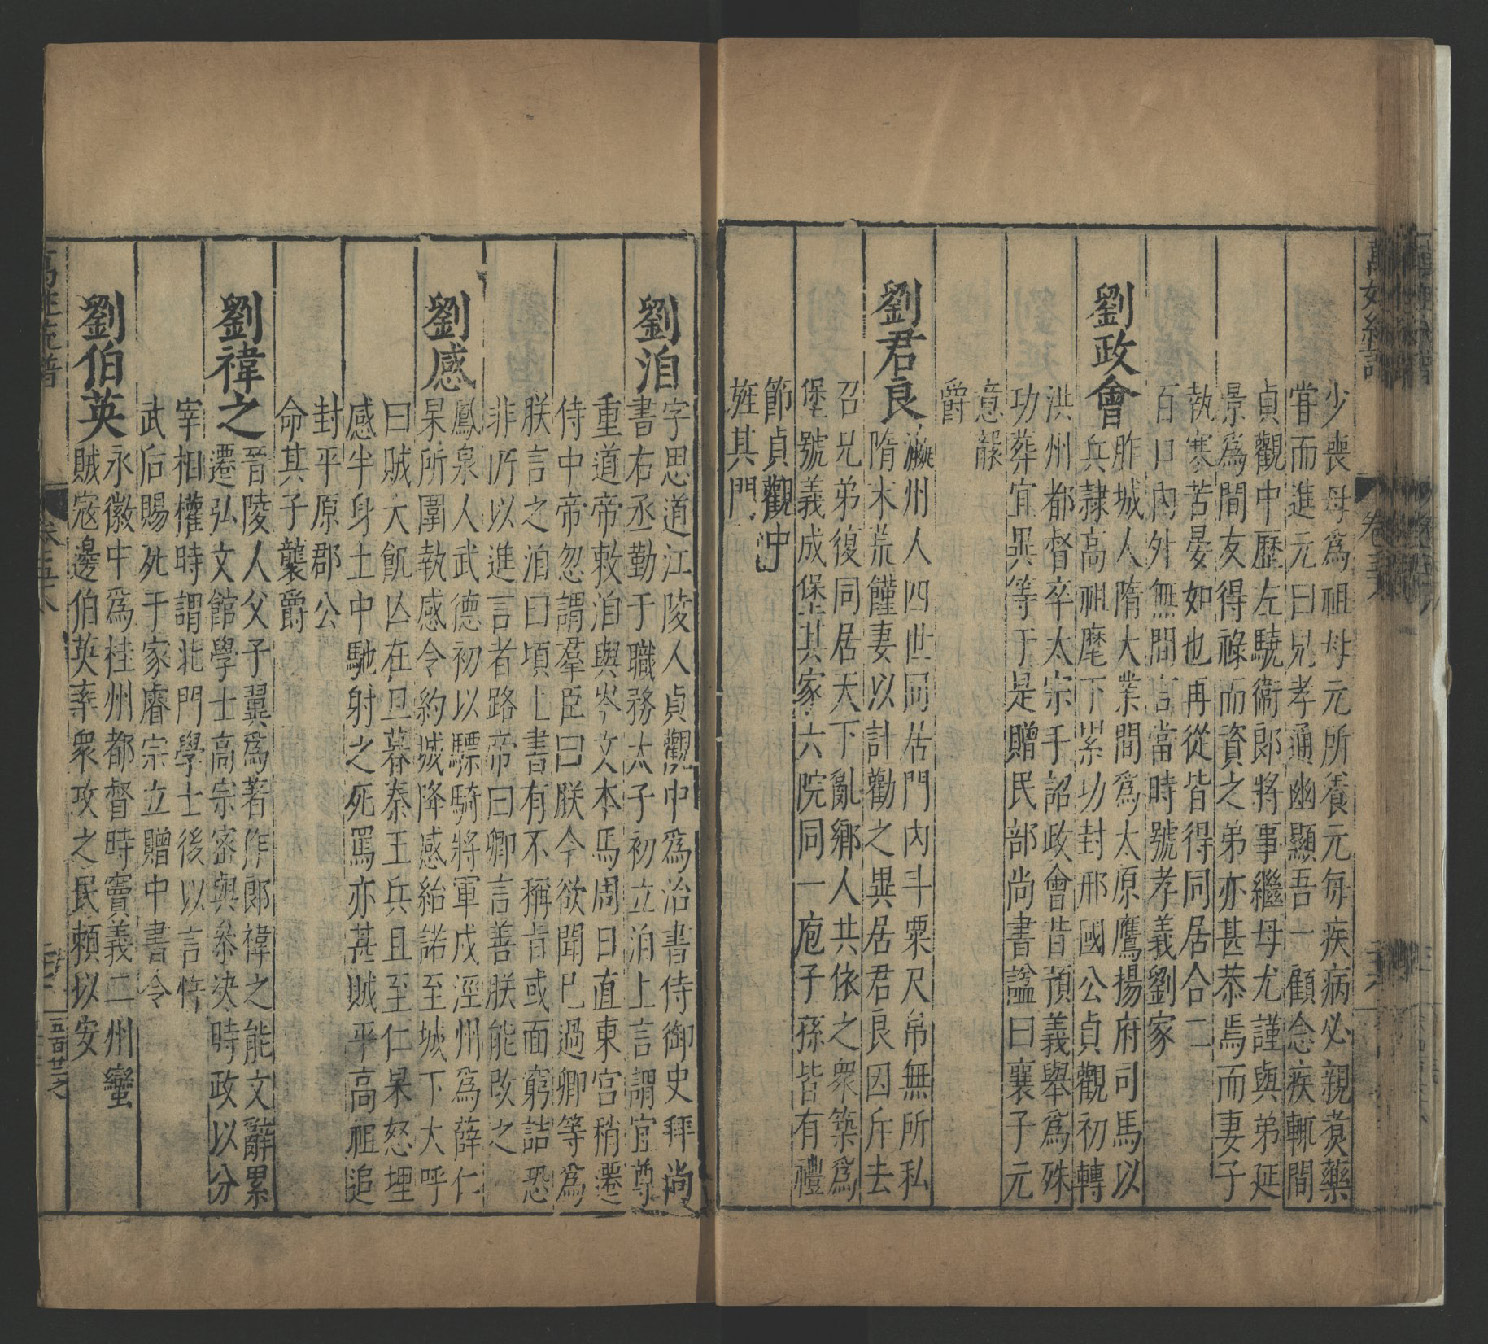 少喪母爲祖母元所養元每疾病必親煑藥
甞而進元曰兄孝通幽顯吾一顧念疾輒間
貞觀中歷左驍衛郎將事繼母尤謹與弟延
景爲間友得祿而資之弟亦甚恭焉而妻子
執寒苦晏如也再從皆得同居合二
百口內外無間言當時號孝義劉家
劉政會
胙城人隋大業間爲太原鷹揚府司馬以
兵隷高祖麾下累功封邢國公貞觀初轉
洪州都督卒太宗手詔政會昔預義舉爲殊
功葬宜異等于是贈民部尚書諡曰襄子元
意襲
爵
劉君良
瀛州人四世同居門內斗粟尺帛無所私
隋末荒饉妻以計勸之異居君良因斥去
召兄弟復同居天下亂鄉人共依之衆築爲
堡號義成堡其家六院同一庖子孫皆有禮
節貞觀中
旌其門
劉洎
字思道江陵人貞觀中爲治書侍御史拜尚
書右丞勤于職務太子初立洎上言謂宜尊
重道帝敕洎與岑文本馬周日直東宮稍遷
侍中帝忽謂羣臣曰朕今欲聞已過卿等爲
朕言之洎曰頃上書有不稱旨或面窮詰恐
非所以進言者路帝曰卿言善朕能改之
劉感
鳳泉人武德初以驃騎將軍戍涇州爲薛仁
杲所圍執感令約城降感紿諾至城下大呼
曰賊大飢亾在旦暮秦王兵且至仁杲怒埋
感半身土中馳射之死罵亦甚賊平高祖追
封平原郡公
命其子襲爵
劉禕之
晉陵人父子翼爲著作郎禕之能文辭累
遷弘文館學士高宗密與參決時政以分
宰相權時謂北門學士後以言忤
武后賜死于家睿宗立贈中書令
劉伯英
永徽中爲桂州都督時竇義二州蠻
賊寇邊伯英率衆攻之民頼以安